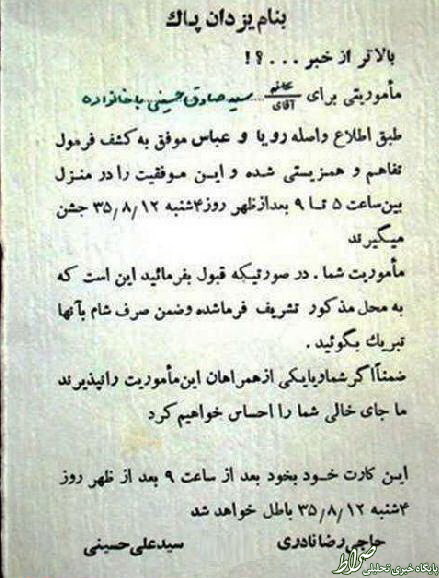 بنام یزدان پاک
بالاتر از خبر ...؟!
مأموریتی برای خانم / آقای سید صادق حسینی با خانواده
طبق اطلاع واصله رویا و عباس موفق به کشف فرمول
تفاهم و همزیستی شده و این موفقیت را در منزل
بین ساعت ۵ تا ۹ بعد از ظهر روز ۴شنبه ۳۵/۸/۱۲ جشن
میگیرند
مأموریت شما . در صورتیکه قبول بفرمائید این است که
به محل مذکور تشریف فرما شده وضمن صرف شام بآنها
تبریک بگوئید .
ضمناً اگر شما یا یکی از همراهان این مأموریت را نپذیرند
ما جای خالی شما را احساس خواهیم کرد
این کارت خود بخود بعد از ساعت ۹ بعد از ظهر روز
۴شنبه ۳۵/۸/۱۲ باطل خواهد شد
حاجی رضا نادری سید علی حسینی
صراط
پایگاه خبری تحلیلی